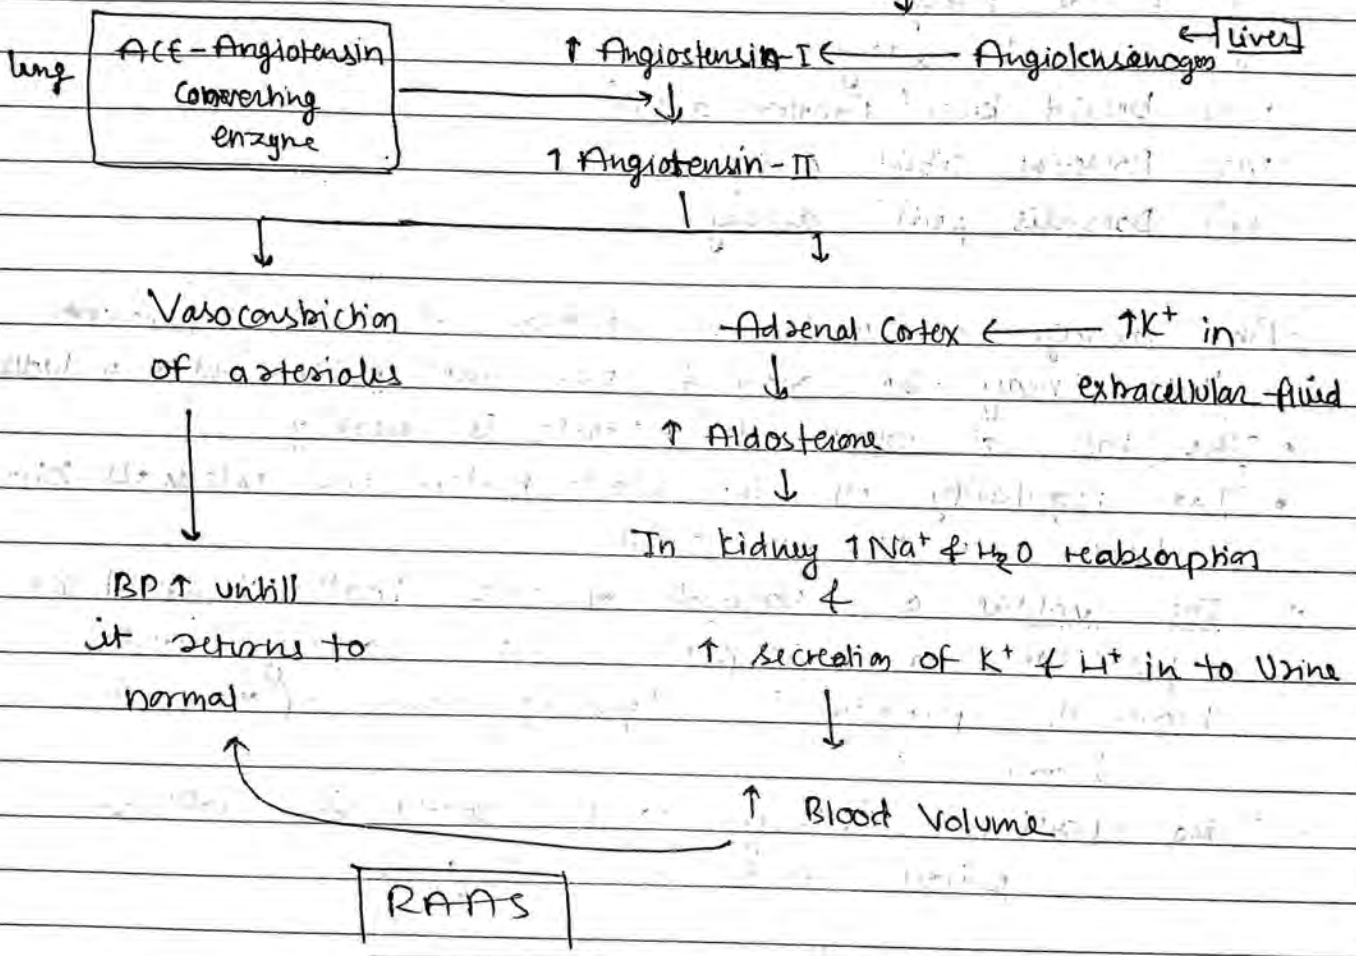 lung
ACE-Angiotensin
Converting
enzyme
↑ Angiostensin-I ← Angiotensinogen ← Liver
↑ Angiotensin-II
Vasoconstriction
of arterioles
BP↑ untill
it returns to
normal
Adrenal Cortex ← ↑K+ in
extracellular fluid
↑ Aldosterone
In kidney ↑Na+ & H2O reabsorption
&
↑ secreation of K+ & H+ in to Urine
↑ Blood Volume
RAAS